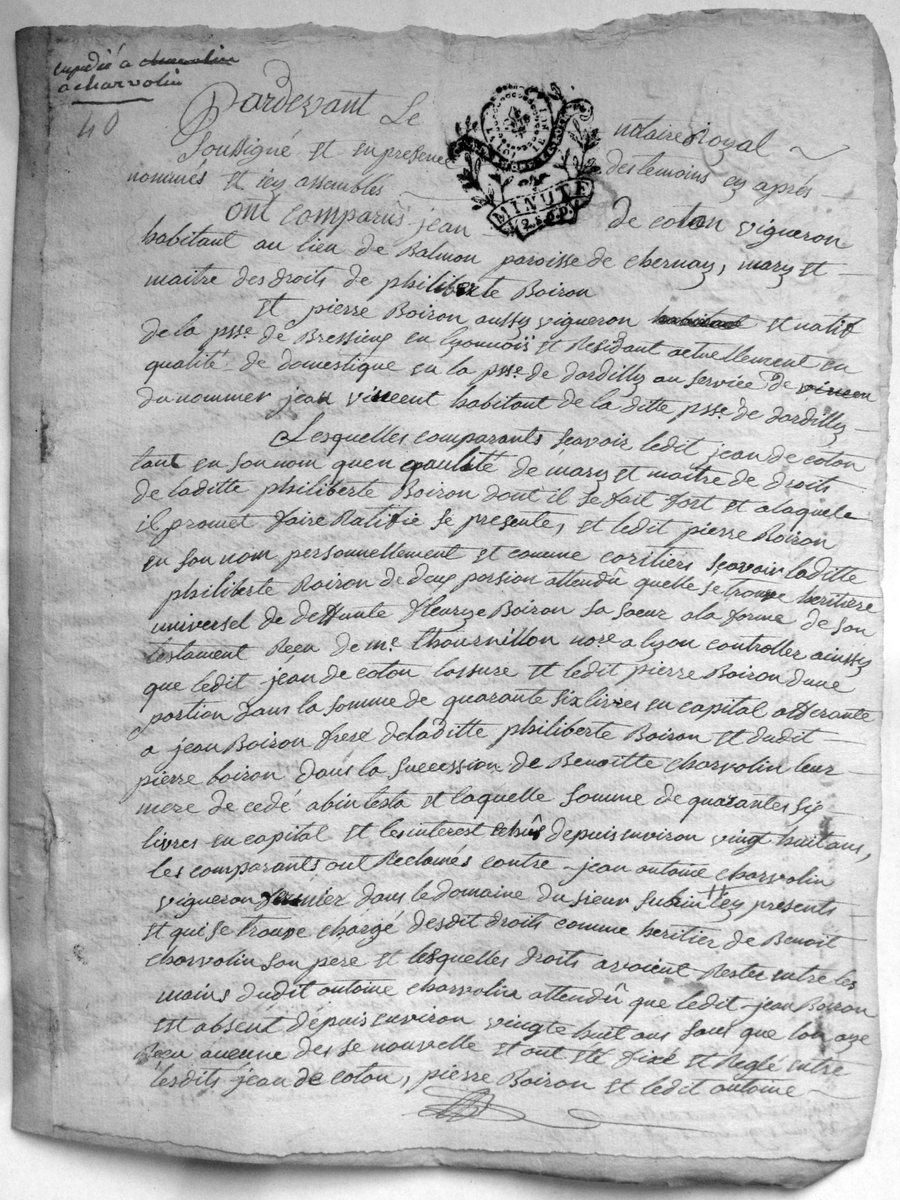 expedié a charvolin
a charvolin
40
Pardevant Le notaire Royal
Soussigné et en presence des temoins cy aprés
nommés et icy assemblés
MINUTE
ont comparûs jean de coton vigneron
habitant au lieu de Balmon paroisse de chernay, mary et
maitre des droits de philiberte Boiron
Et pierre Boiron aussy vigneron habitant et natif
de la psse. de Bressieux en lyonnois et Residant actuellement en
qualité de domestique en la psse. de dardilly au service de vincen
du nommer jean vincent habitant de la ditte psse de dardilly
Lesquelles comparants scavoir ledit jean de coton
tant en son nom quen qualité de mary et maitre de droits
de laditte philiberte Boiron dont il se fait fort et alaquele
il promet faire Ratifie se presente, et ledit pierre Boiron
en son nom personnellement et comme coriliers scavoir laditte
philiberte Boiron de deux porsion attendû quelle se trouve heritiere
universel de deffunte fleurye Boiron sa soeur a la forme de son
testament Receu de me. thournillon nore a lyon controller ainssy
que ledit jean de coton lassure et ledit pierre Boiron dune
portion dans la somme de quarante six livres en capital afferante
a jean Boiron frere de laditte philiberte Boiron et dudit
pierre boiron dans la succession de Benoitte charvolin leur
mere de cedé abintesta et laquelle somme de quarantes six
livres en capital et les interest echûs depuis environ vingt huit ans,
les comparants ont Reclamés contre jean antoine charvolin
vigneron fermier dans le domaine du sieur subrin icy presents
et qui se trouve chargé desdit droits comme heritier de Benoit
charvolin son pere et lesquelles droits avoient Rester entre les
mains dudit antoine charvolin attendû que ledit jean Boiron
est absent depuis environ vingte huit ans sans que lon aye
Receu aucune des se nouvelle et ont eté fixé et Reglé entre
lesdits jean de coton, pierre Boiron et ledit antoine